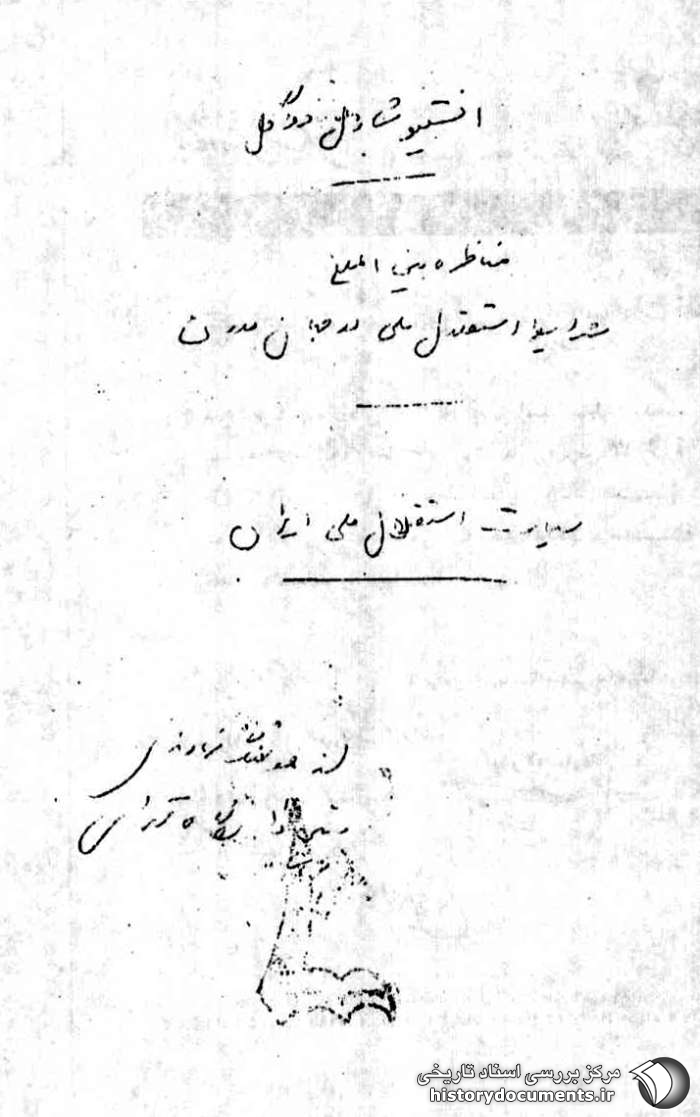 انستیتو شارل دوگل
مناظره بین المللی
شرایط استقلال ملی در جهان مدرن
سیاست استقلال ملی ایران
از هوشنگ نهاوندی
رئیس دانشگاه تهران
مرکز بررسی اسناد تاریخی
historydocuments.ir